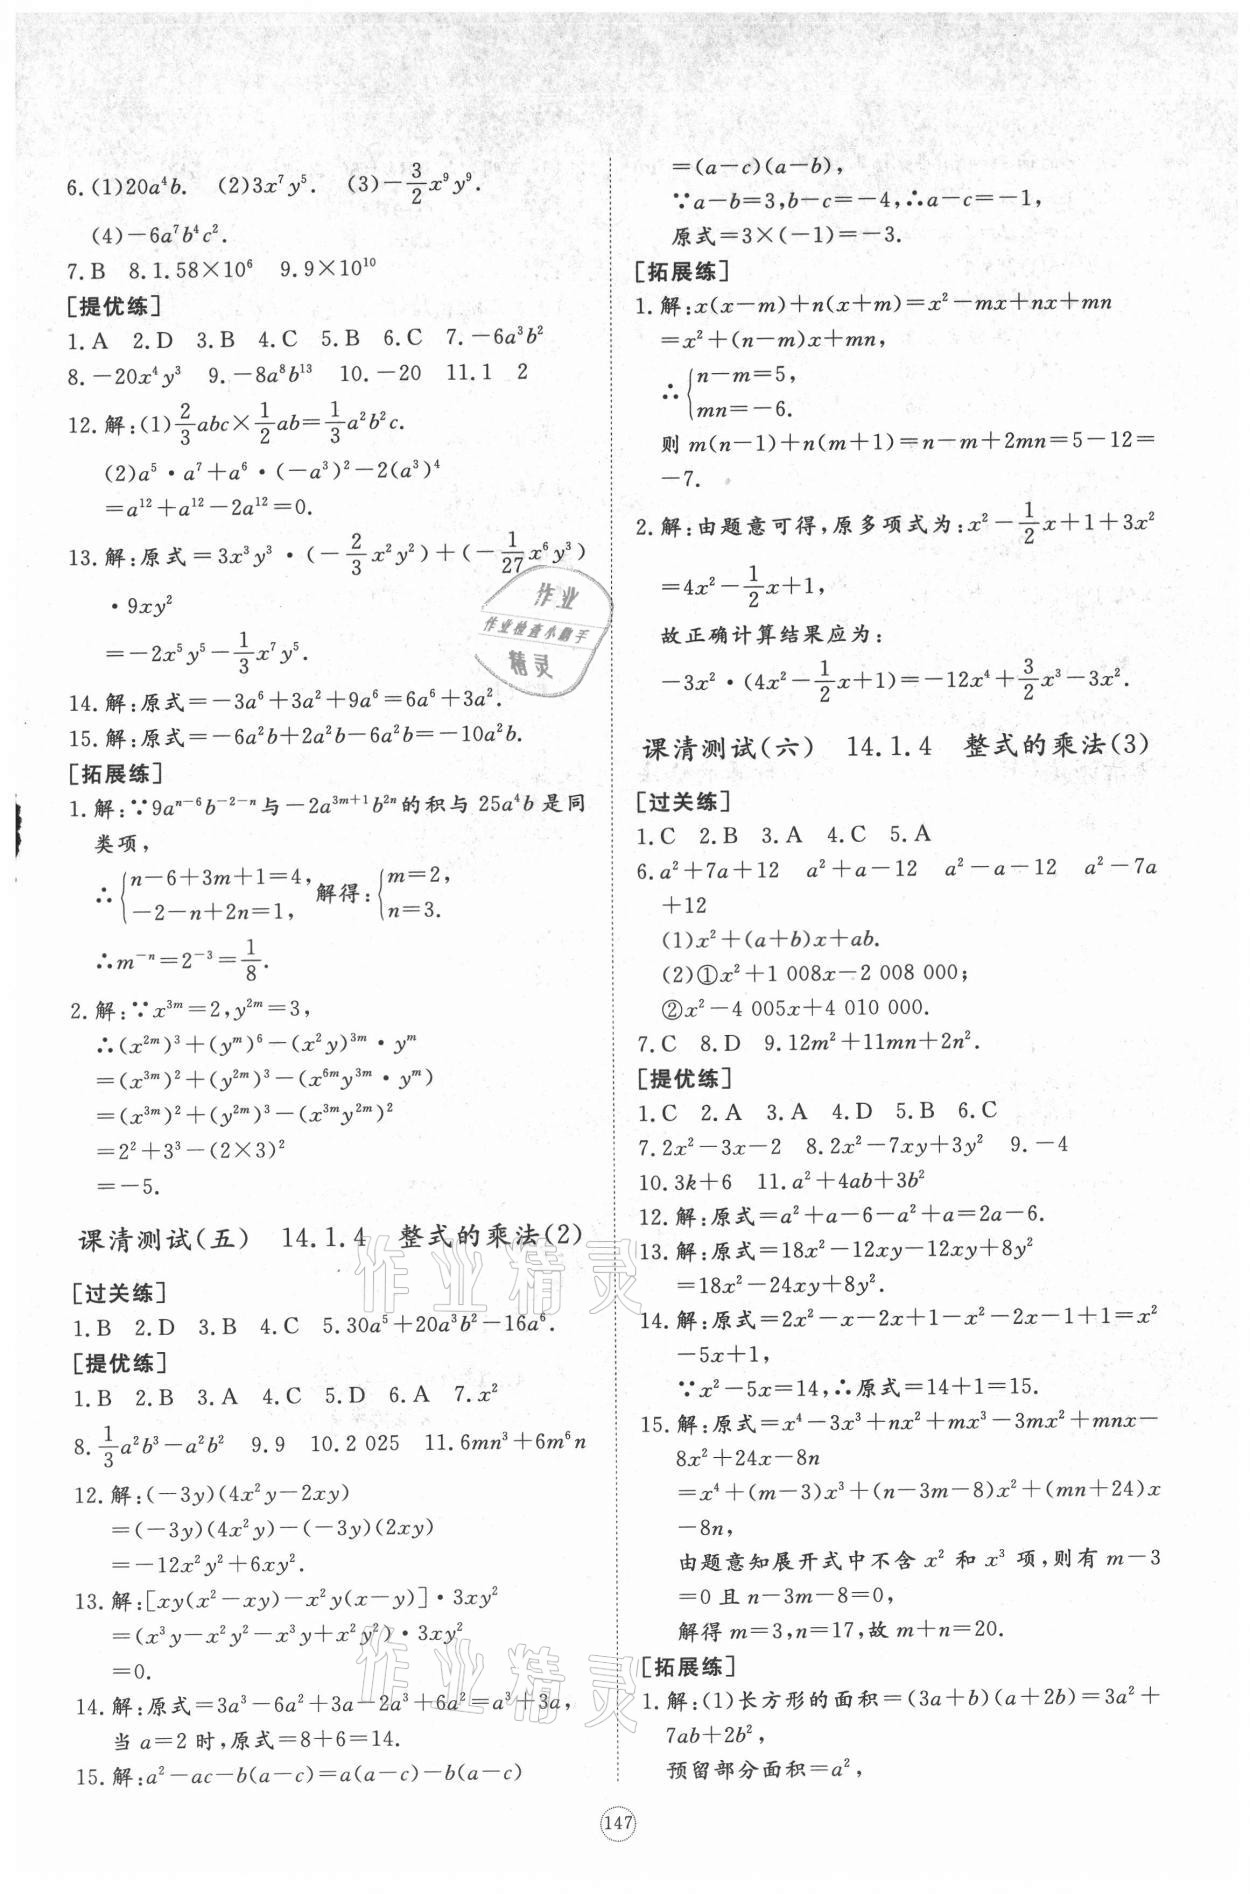 6.(1)20a⁴b.  (2)3x⁷y⁵.  (3)−3/2x⁹y⁹.
(4)−6a⁷b⁴c².
7.B  8.1.58×10⁶  9.9×10¹⁰
[提优练]
1.A  2.D  3.B  4.C  5.B  6.C  7.−6a³b²
8.−20x⁴y³  9.−8a⁸b¹³  10.−20  11.1  2
12.解:(1)2/3abc×1/2ab=1/3a²b²c.
(2)a⁵·a⁷+a⁶·(−a³)²−2(a³)⁴
=a¹²+a¹²−2a¹²=0.
13.解:原式=3x³y³·(−2/3x²y²)+(−1/27x⁶y³)
·9xy²
=−2x⁵y⁵−1/3x⁷y⁵.
14.解:原式=−3a⁶+3a²+9a⁶=6a⁶+3a².
15.解:原式=−6a²b+2a²b−6a²b=−10a²b.
[拓展练]
1.解:∵9aⁿ⁻⁶b⁻²⁻ⁿ与−2a³ᵐ⁺¹b²ⁿ的积与25a⁴b是同
类项,
∴{n−6+3m+1=4, −2−n+2n=1, 解得:{m=2, n=3.
∴m⁻ⁿ=2⁻³=1/8.
2.解:∵x³ᵐ=2,y²ᵐ=3,
∴(x²ᵐ)³+(yᵐ)⁶−(x²y)³ᵐ·yᵐ
=(x³ᵐ)²+(y²ᵐ)³−(x⁶ᵐy³ᵐ·yᵐ)
=(x³ᵐ)²+(y²ᵐ)³−(x³ᵐy²ᵐ)²
=2²+3³−(2×3)²
=−5.
课清测试(五)  14.1.4  整式的乘法(2)
[过关练]
1.B  2.D  3.B  4.C  5.30a⁵+20a³b²−16a⁶.
[提优练]
1.B  2.B  3.A  4.C  5.D  6.A  7.x²
8.1/3a²b³−a²b²  9.9  10.2 025  11.6mn³+6m⁶n
12.解:(−3y)(4x²y−2xy)
=(−3y)(4x²y)−(−3y)(2xy)
=−12x²y²+6xy².
13.解:[xy(x²−xy)−x²y(x−y)]·3xy²
=(x³y−x²y²−x³y+x²y²)·3xy²
=0.
14.解:原式=3a³−6a²+3a−2a³+6a²=a³+3a,
当a=2时,原式=8+6=14.
15.解:a²−ac−b(a−c)=a(a−c)−b(a−c)
=(a−c)(a−b),
∵a−b=3,b−c=−4,∴a−c=−1,
原式=3×(−1)=−3.
[拓展练]
1.解:x(x−m)+n(x+m)=x²−mx+nx+mn
=x²+(n−m)x+mn,
∴{n−m=5, mn=−6.
则m(n−1)+n(m+1)=n−m+2mn=5−12=
−7.
2.解:由题意可得,原多项式为:x²−1/2x+1+3x²
=4x²−1/2x+1,
故正确计算结果应为:
−3x²·(4x²−1/2x+1)=−12x⁴+3/2x³−3x².
课清测试(六)  14.1.4  整式的乘法(3)
[过关练]
1.C  2.B  3.A  4.C  5.A
6.a²+7a+12  a²+a−12  a²−a−12  a²−7a
+12
(1)x²+(a+b)x+ab.
(2)①x²+1 008x−2 008 000;
②x²−4 005x+4 010 000.
7.C  8.D  9.12m²+11mn+2n².
[提优练]
1.C  2.A  3.A  4.D  5.B  6.C
7.2x²−3x−2  8.2x²−7xy+3y²  9.−4
10.3k+6  11.a²+4ab+3b²
12.解:原式=a²+a−6−a²+a=2a−6.
13.解:原式=18x²−12xy−12xy+8y²
=18x²−24xy+8y².
14.解:原式=2x²−x−2x+1−x²−2x−1+1=x²
−5x+1,
∵x²−5x=14,∴原式=14+1=15.
15.解:原式=x⁴−3x³+nx²+mx³−3mx²+mnx−
8x²+24x−8n
=x⁴+(m−3)x³+(n−3m−8)x²+(mn+24)x
−8n,
由题意知展开式中不含x²和x³项,则有m−3
=0且n−3m−8=0,
解得m=3,n=17,故m+n=20.
[拓展练]
1.解:(1)长方形的面积=(3a+b)(a+2b)=3a²+
7ab+2b²,
预留部分面积=a²,
147
作业
作业检查小助手
精灵
作业精灵
作业精灵